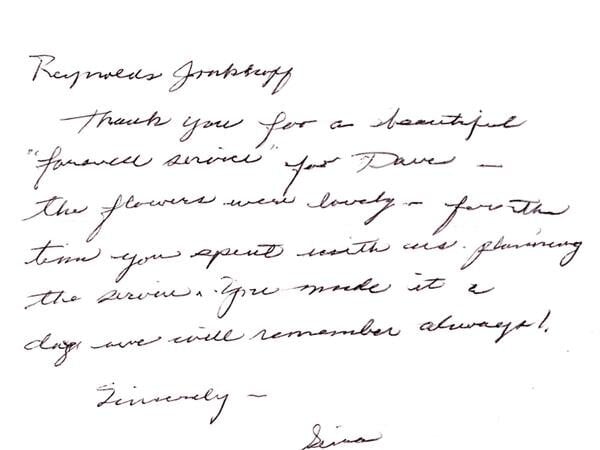 Reynolds Jonkhoff
Thank you for a beautiful
"farewell service" for Dave -
the flowers were lovely - for the
time you spent with us planning
the service. You made it a
day we will remember always!
Sincerely -